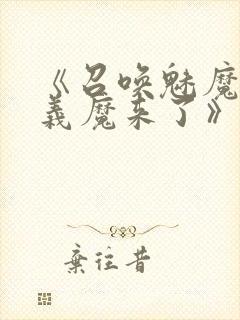 《召唤魅魔
義魔来了》
棄往昔